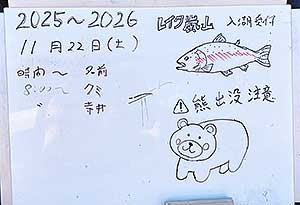 2025～2026
11月22日(土)
時間～ 名前
8:00～ クミ
〃 寺井
レイク嵐山 入湖受付
⚠熊出没注意